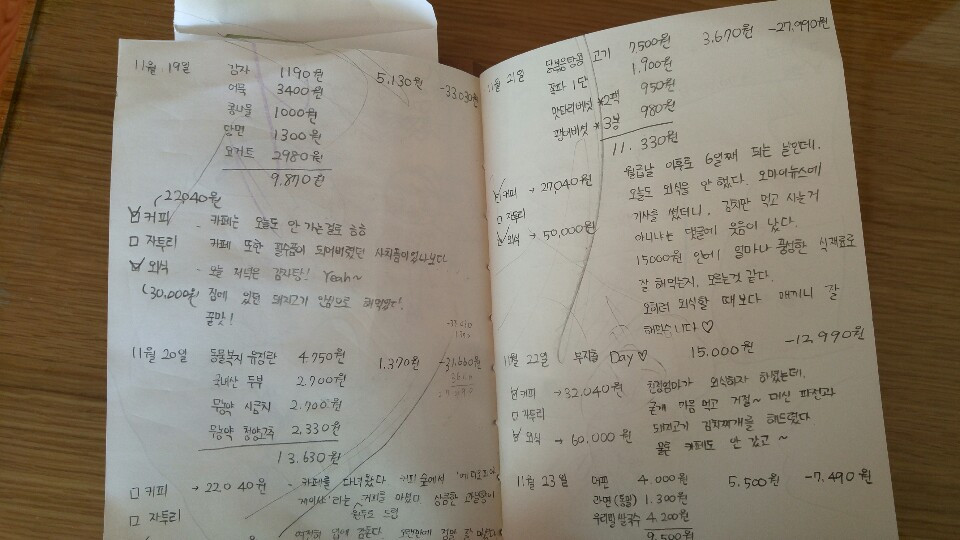 11월 19일 감자 1190원 5.130원 -33.030원
어묵 3400원
콩나물 1000원
당면 1300원
요거트 2980원
9.870원
22040원
☑ 커피 - 카페는 오늘도 안 가는걸로 흠흠
□ 자투리 카페 또한 필수품이 되어버렸던 사치품이었나보다.
☑ 외식 - 오늘 저녁은 감자탕! Yeah~
(30,000원) 집에 있던 돼지고기 안심으로 해먹었다!
꿀맛!
11월 20일 동물복지 유정란 4750원 1.370원 -31.660원
국내산 두부 2.700원
무농약 시금치 2.700원
무농약 청양고추 2.330원
13.630원
□ 커피 → 22040원 - 카페를 다녀왔다
□ 자투리
11월 21일 닭볶음탕용 고기 7,500원 3.670원 -27.990원
쪽파 1단 1.900원
맛타리버섯 *2팩 950원
팽이버섯 *3봉 980원
11.330원
☑ 커피 → 27,040원
□ 자투리
☑ 외식 → 50,000원
월급날 이후로 6일째 되는 날인데.
오늘도 외식을 안 했다. 오마이뉴스에
기사을 썼더니, 김치만 먹고 사는거
아니냐는 댓글에 웃음이 났다.
15000원 안에 얼마나 풍성한 식재료로
잘 해먹는지, 모르는것 같다.
오히려 외식할 때보다 매끼니 잘
해먹습니다 ♡
11월 22일 무지출 Day ♡ 15.000원 -12.990원
☑ 커피 → 32.040원
□ 자투리
☑ 외식 → 60.000원
친정엄마가 외식하자 하셨는데.
굳게 마음 먹고 거절~ 대신 파전과
돼지고기 김치찌개를 해드렸다
카페도 안 갔고~
11월 23일 4.000원 5.500원 -7.490원
라면(통밀) 1.300원
우리밀쌀국수 4.200원
9.500원